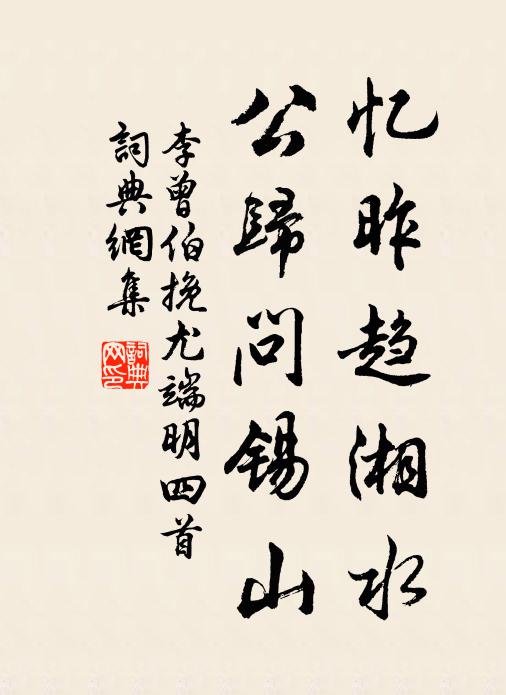 忆昨趋湘水
公歸问锡山
李曾伯挽尤端明四首
詞典網集
詞典网印